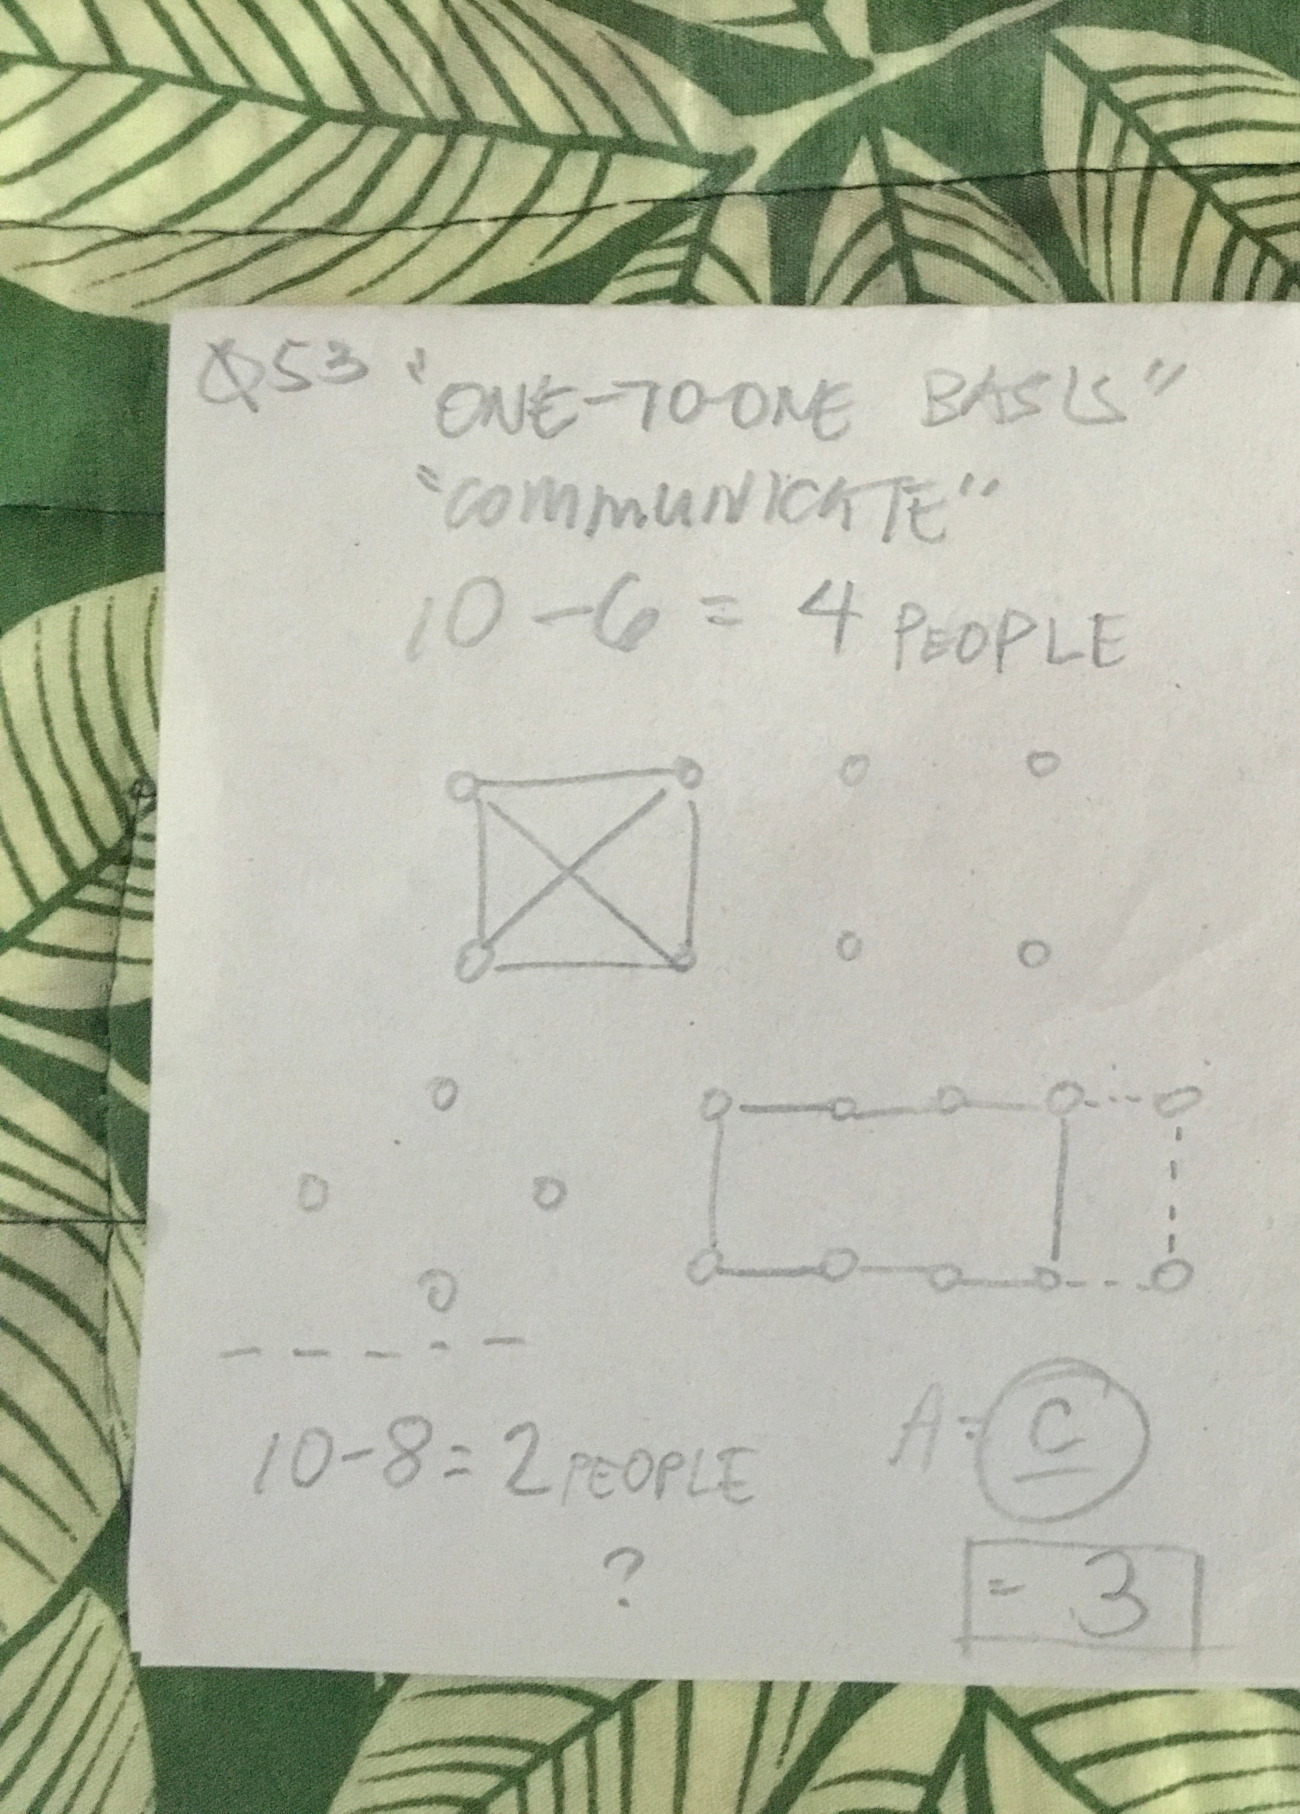 Q53 "ONE-TO-ONE BASIS"
"COMMUNICATE"
10 - 6 = 4 PEOPLE
10 - 8 = 2 PEOPLE
?
A = C
= 3